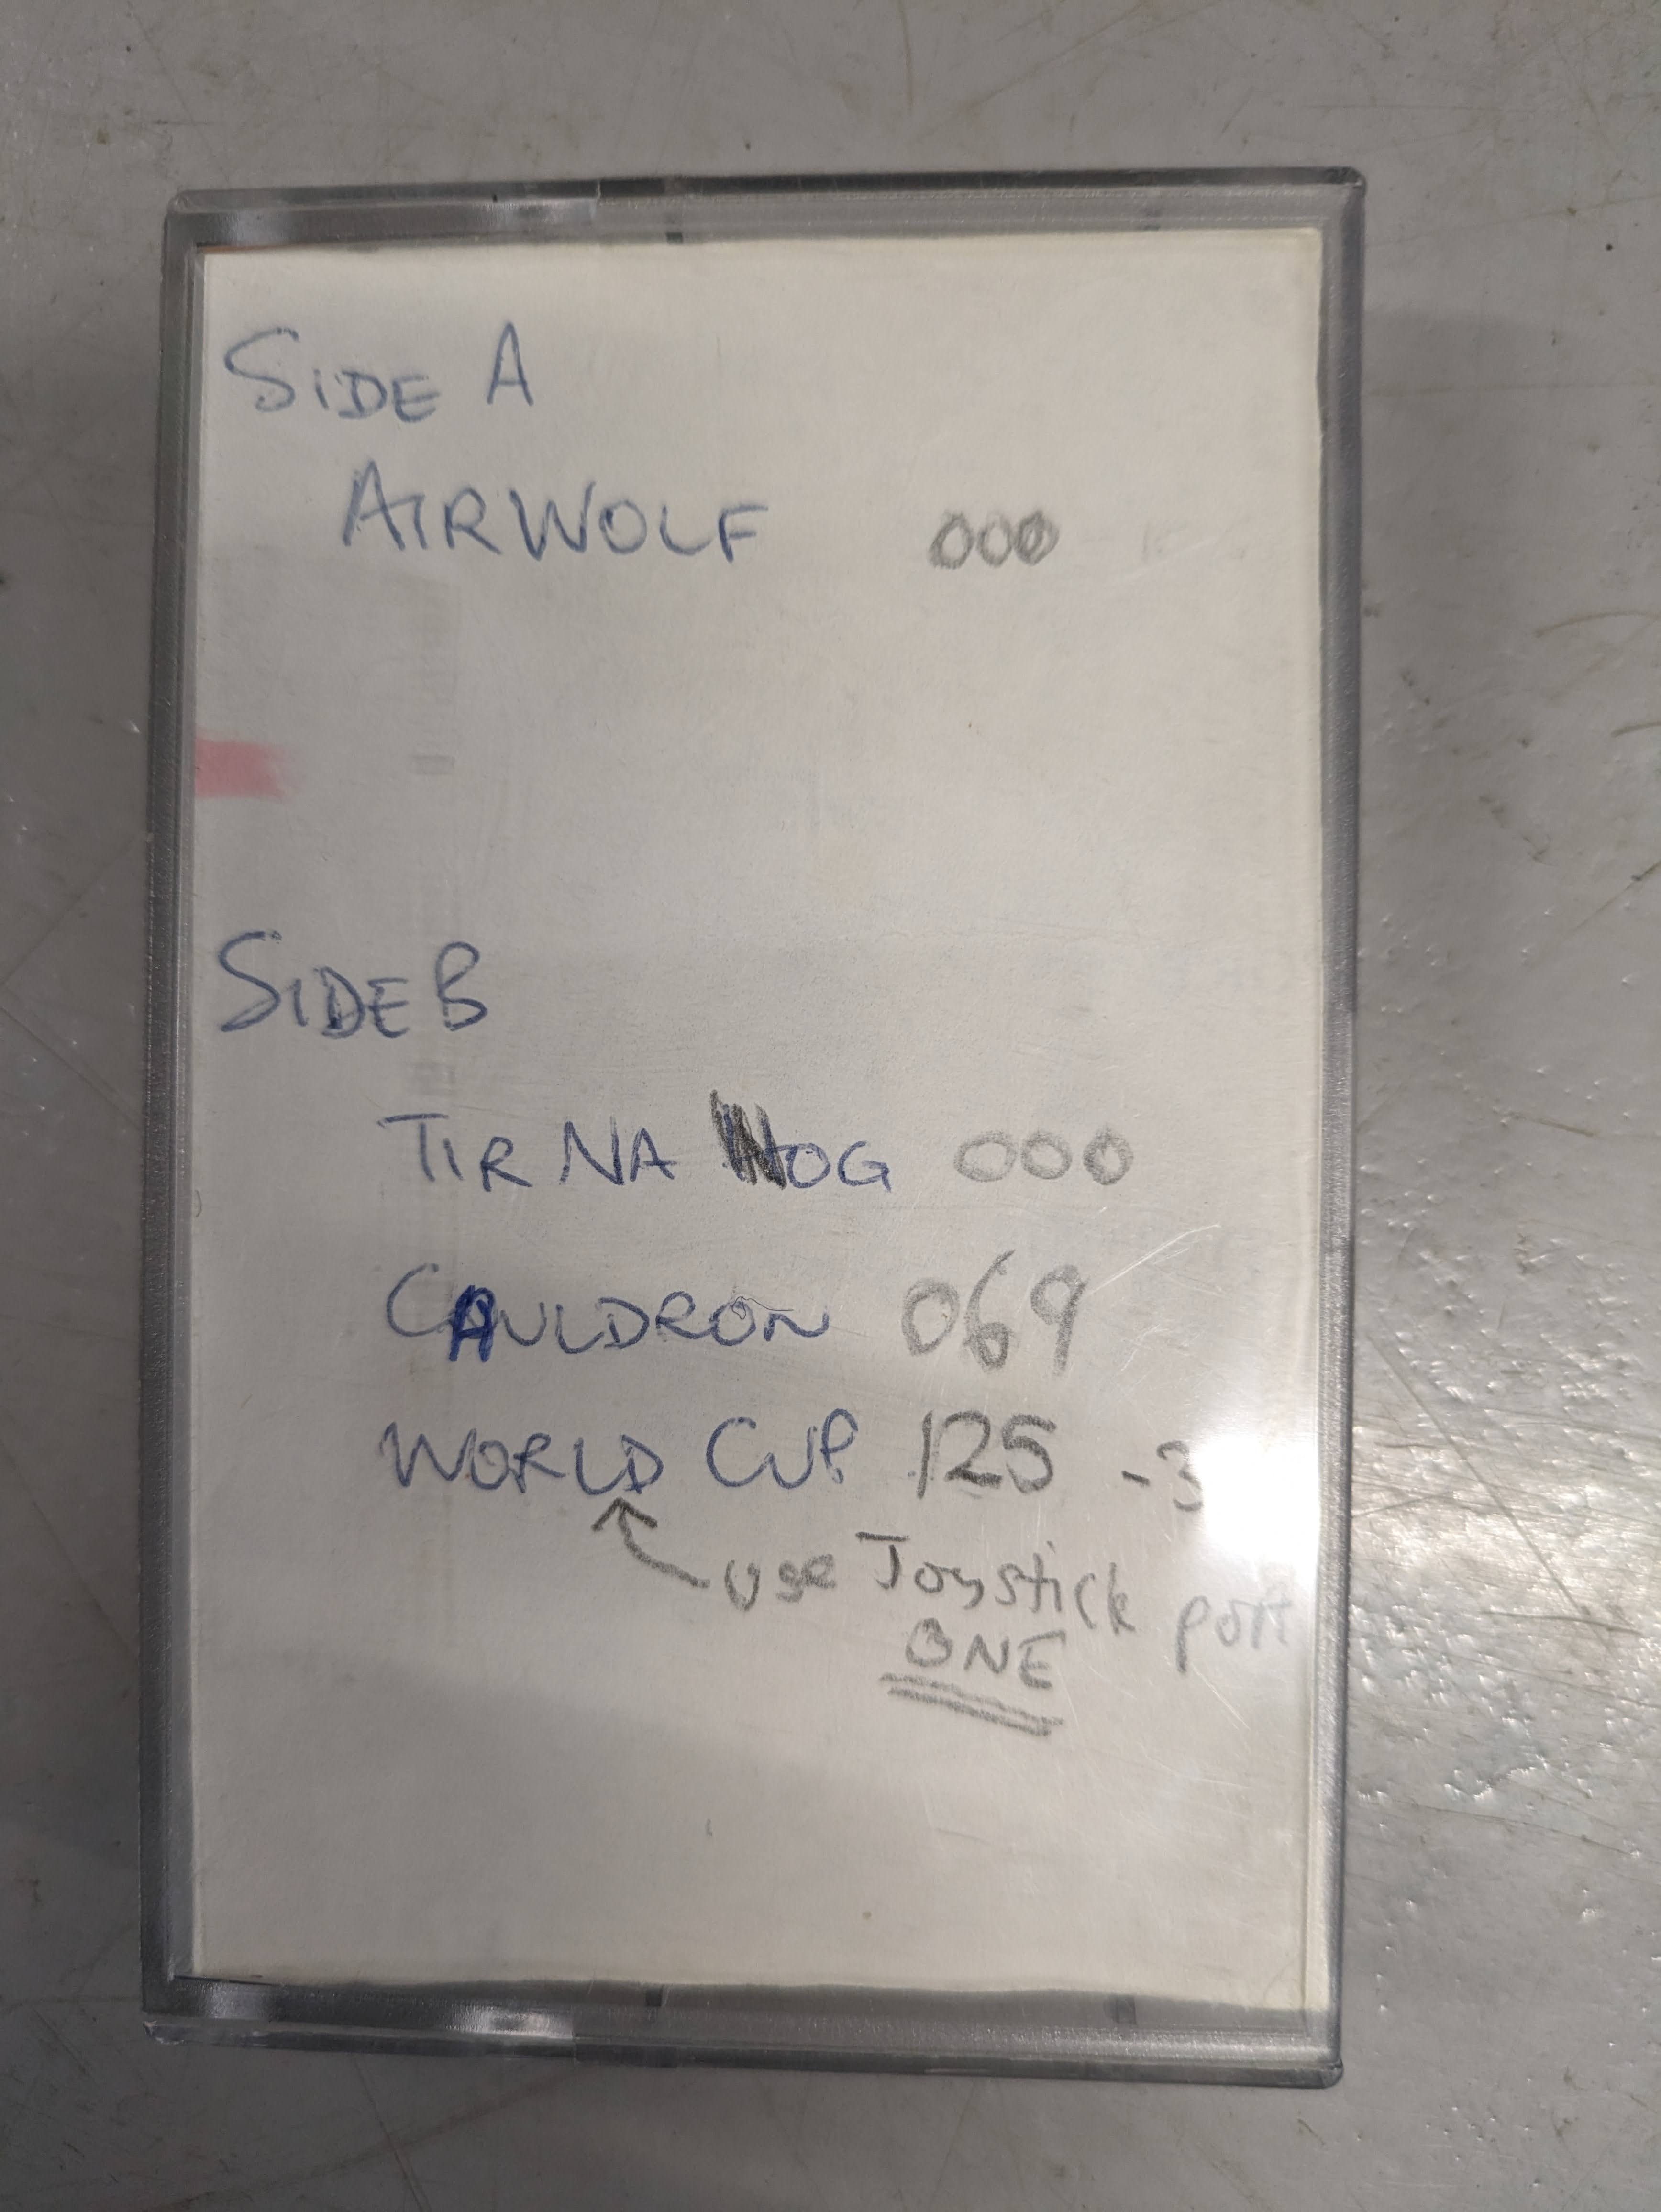 SIDE A
AIRWOLF 000
SIDE B
TIR NA NOG 000
CAULDRON 069
WORLD CUP 125 -3
use Joystick port
ONE